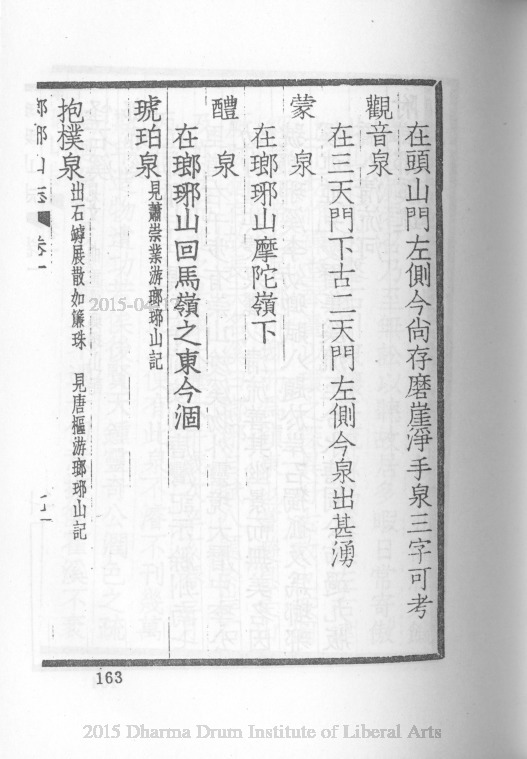 在頭山門左側今尚存磨崖淨手泉三字可考
觀音泉
在三天門下古二天門左側今泉出甚湧
蒙泉
在瑯琊山摩陀嶺下
醴泉
在瑯琊山回馬嶺之東今涸
琥珀泉見蕭崇業游瑯琊山記
抱樸泉出石罅展散如簾珠 見唐樞游瑯琊山記
瑯琊山志 卷一
163
2015-04
2015 Dharma Drum Institute of Liberal Arts